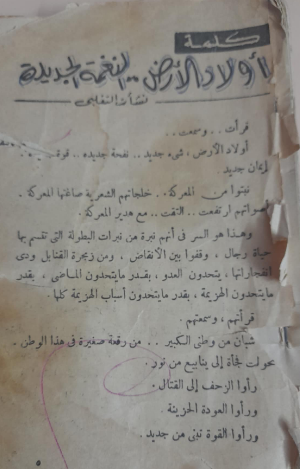 كلمة
أولاد الأرض .. النغمة الجديدة
نشأت التغلبي
قرأت .. وسمعت ..
أولاد الأرض ، شيء جديد .. نفحة جديدة .. قوة
إيمان جديد .
نبتوا من المعركة .. خلجاتهم الشعرية صاغتها المعركة .
أصواتهم ارتفعت .. التقت .. مع هدير المعركة .
وهذا هو السر في أنهم نبرة من نبرات البطولة التي تقسم بها
حياة رجال ، وقفوا بين الأنقاض ، ومن زمجرة القنابل ودى
انفجاراتها ، يتحدون العدو ، بقدر مايتحدون الماضي ، بقدر
مايتحدون الهزيمة ، بقدر مايتحدون أسباب الهزيمة كلها .
قرأتهم ، وسمعتهم .
شبان من وطنى الكبير .. من رقعة صغيرة في هذا الوطن .
تحولت فجأة إلى ينابيع من نور .
رأوا الزحف إلى القتال .
ورأوا العودة الحزينة .
ورأوا القوة تبنى من جديد .
٥